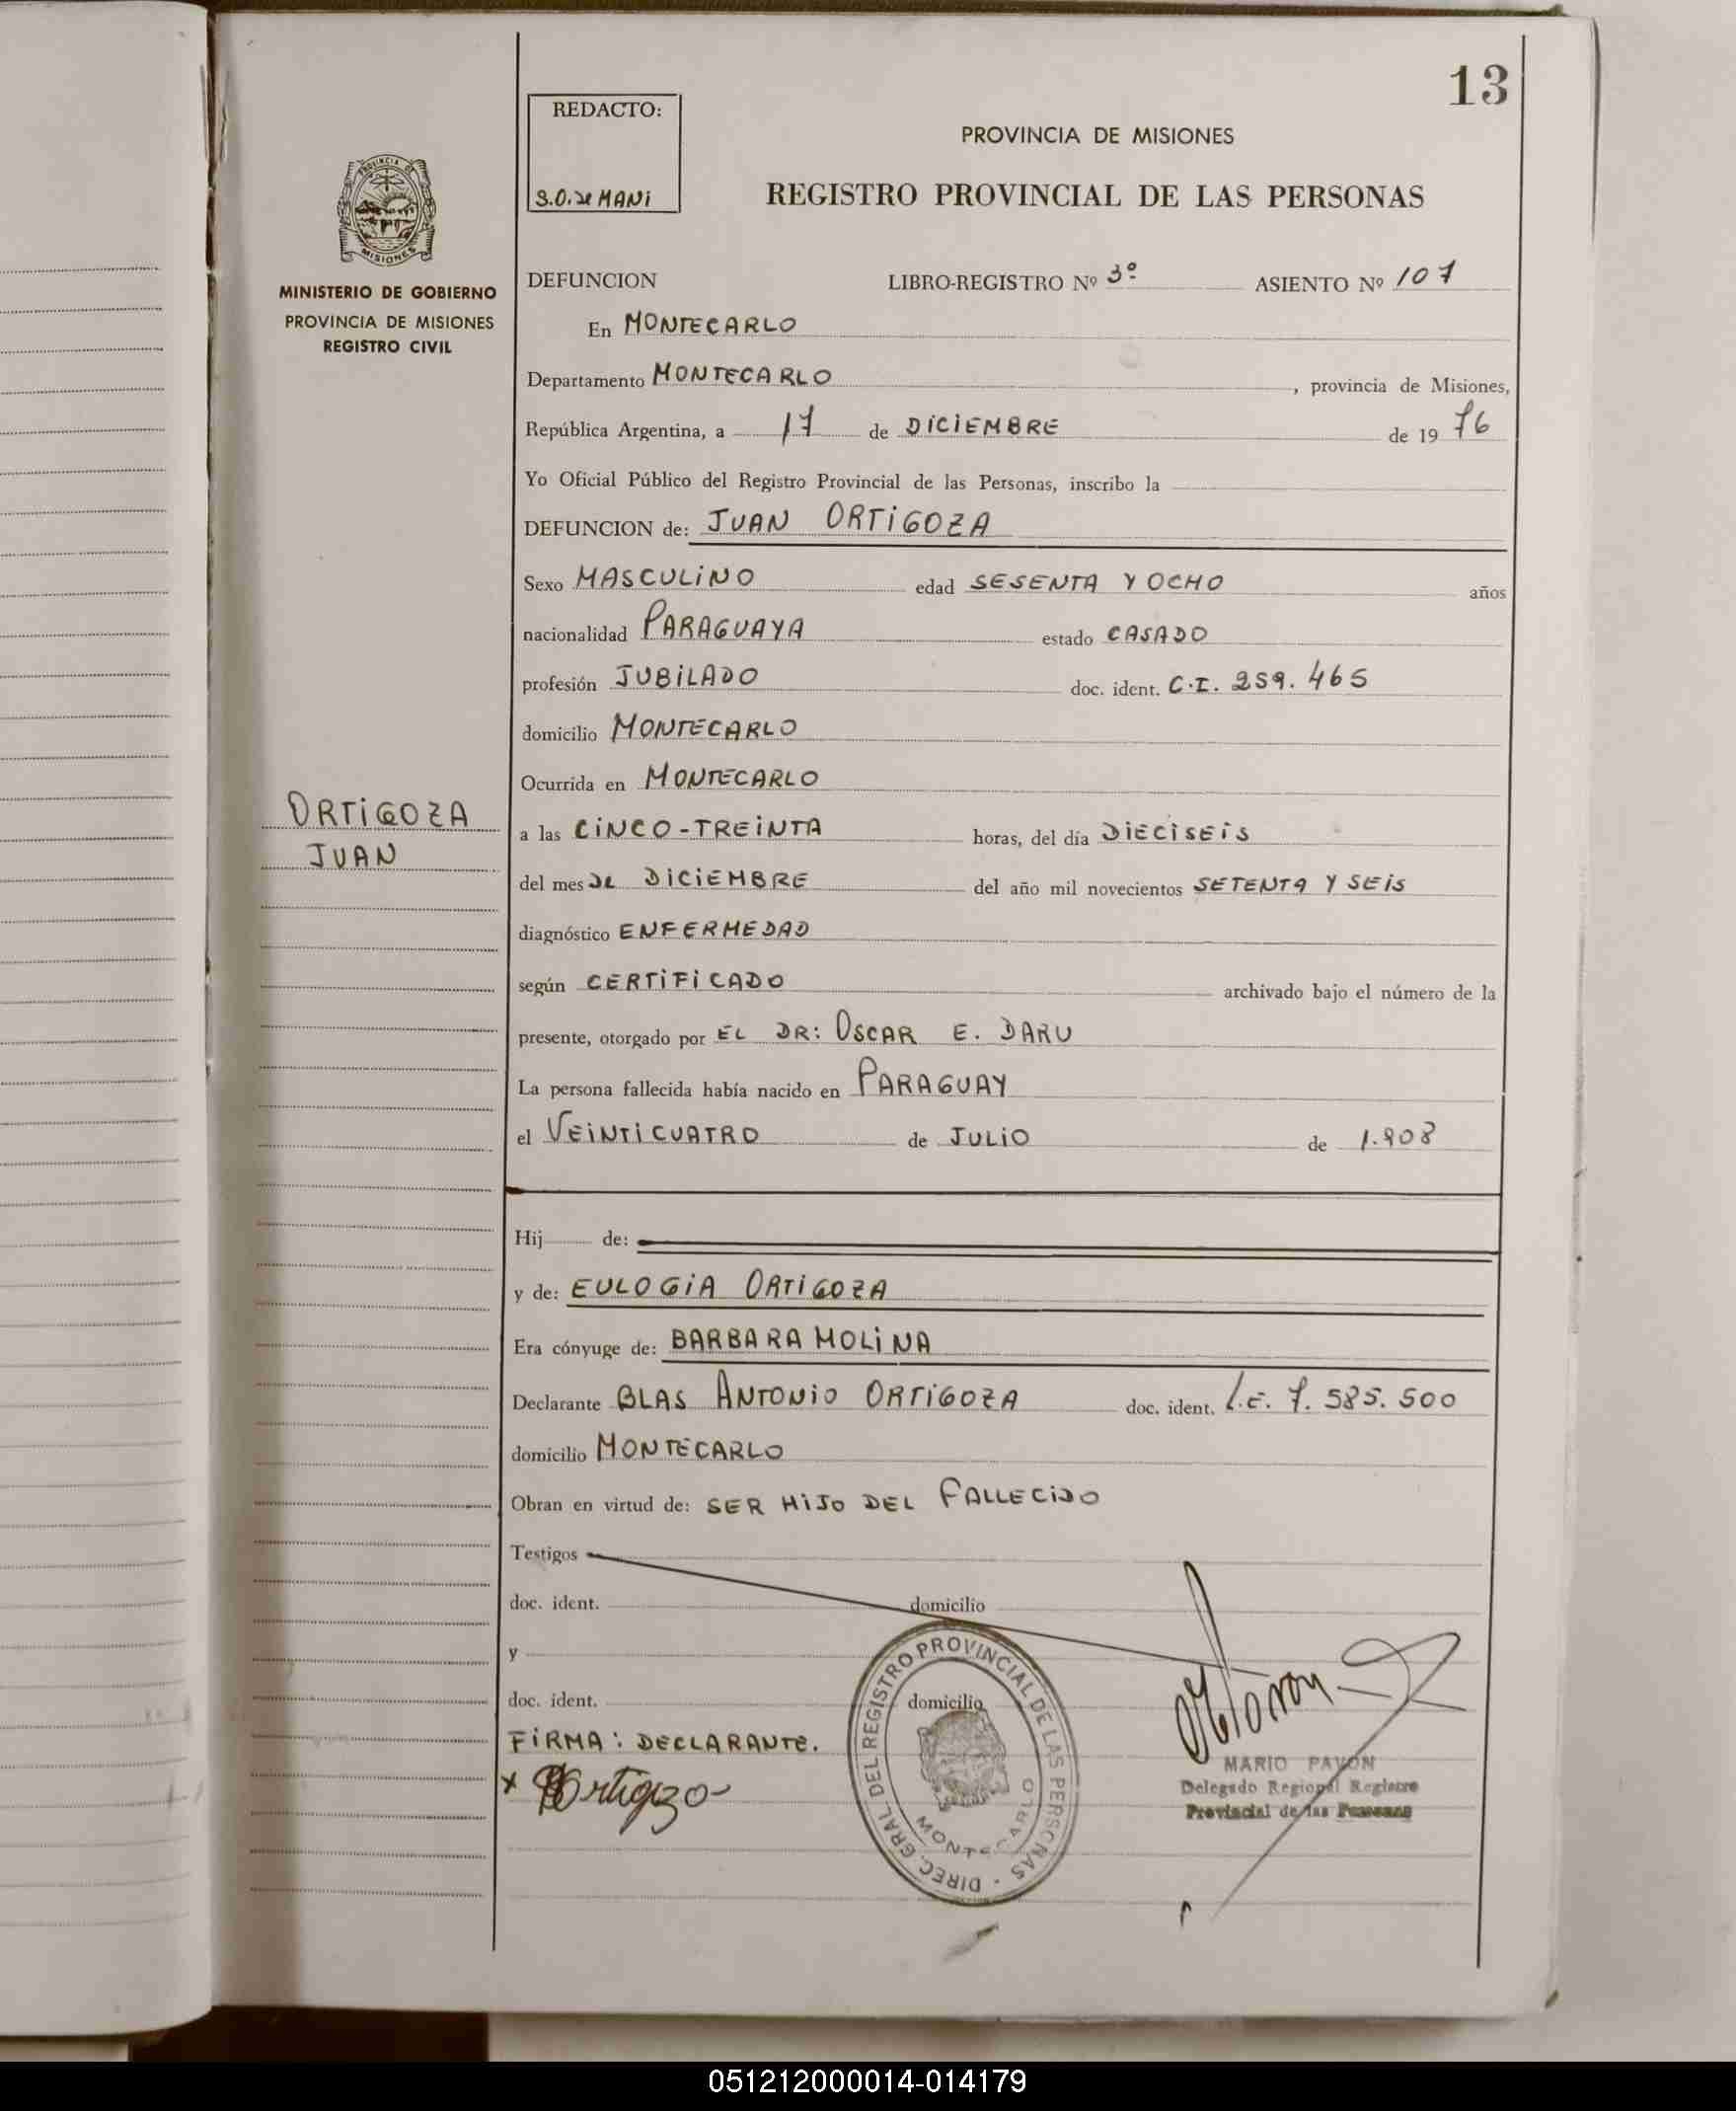 13
REDACTO:
S.O. de MANI
PROVINCIA DE MISIONES
REGISTRO PROVINCIAL DE LAS PERSONAS
PROVINCIA DE
MISIONES
MINISTERIO DE GOBIERNO
PROVINCIA DE MISIONES
REGISTRO CIVIL
ORTIGOZA
JUAN
DEFUNCION LIBRO-REGISTRO Nº 3º ASIENTO Nº 107
En MONTECARLO
Departamento MONTECARLO, provincia de Misiones,
República Argentina, a 17 de DICIEMBRE de 19 76
Yo Oficial Público del Registro Provincial de las Personas, inscribo la
DEFUNCION de: JUAN ORTIGOZA
Sexo MASCULINO edad SESENTA Y OCHO años
nacionalidad PARAGUAYA estado CASADO
profesión JUBILADO doc. ident. C.I. 259.465
domicilio MONTECARLO
Ocurrida en MONTECARLO
a las CINCO-TREINTA horas, del día DIECISEIS
del mes de DICIEMBRE del año mil novecientos SETENTA Y SEIS
diagnóstico ENFERMEDAD
según CERTIFICADO archivado bajo el número de la
presente, otorgado por EL DR: OSCAR E. DARU
La persona fallecida había nacido en PARAGUAY
el VEINTICUATRO de JULIO de 1.908
Hij de:
y de: EULOGIA ORTIGOZA
Era cónyuge de: BARBARA MOLINA
Declarante BLAS ANTONIO ORTIGOZA doc. ident. L.E. 7.585.500
domicilio MONTECARLO
Obran en virtud de: SER HIJO DEL FALLECIDO
Testigos
doc. ident. domicilio
y
doc. ident. domicilio
FIRMA: DECLARANTE.
x BOrtigozo
DIREC. GRAL DEL REGISTRO PROVINCIAL DE LAS PERSONAS
MONTECARLO
MARIO PAVON
Delegado Regional Registro
Provincial de las Personas
051212000014-014179